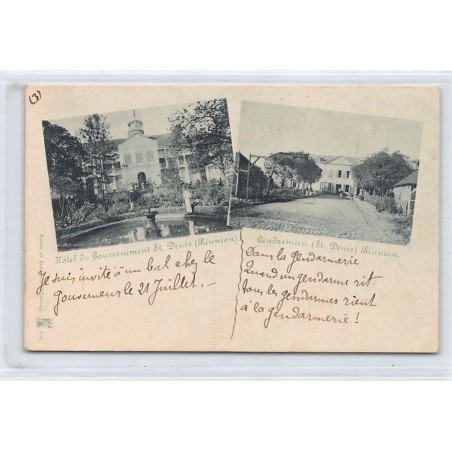 (3)
Hôtel du Gouvernement St. Denis (Réunion)
Je suis invité à un bal chez le
gouverneur le 21 Juillet. -
Gendarmerie (St. Denis) Réunion.
Dans la gendarmerie
Quand un gendarme rit
tous les gendarmes rient
à la gendarmerie !